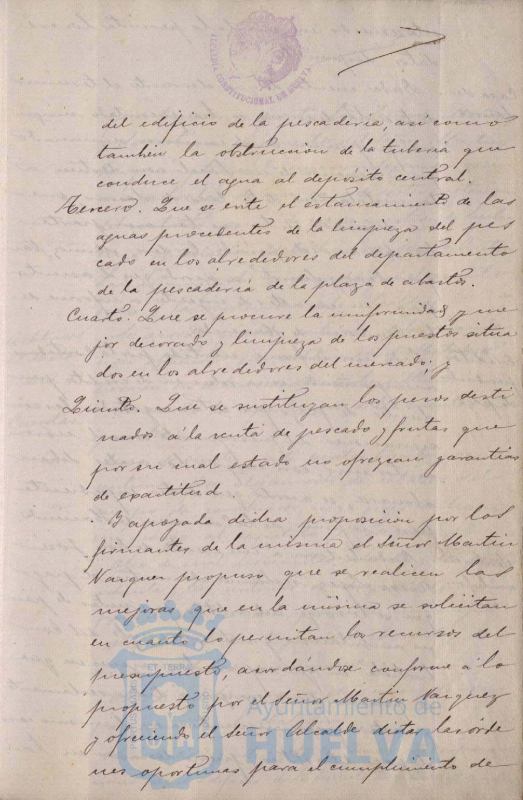 del edificio de la pescaderia, asi como
tambien la obstruccion de la tuberia que
conduce el agua al deposito central.
Tercero. Que se evite el estancamiento de las
aguas procedentes de la limpieza del pes
cado en los alrededores del departamento
de la pescaderia de la plaza de abastos.
Cuarto. Que se procure la uniformidad y me
jor decorado y limpieza de los puestos situa
dos en los alrededores del mercado; y
Quinto. Que se sustituyan los pesos desti
nados á la venta de pescado y frutas que
por su mal estado no ofrezcan garantias
de exactitud.
Y apoyada dicha proposicion por los
firmantes de la misma el Señor Martin
Vazquez propuso que se realicen las
mejoras que en la misma se solicitan
en cuanto lo permitan los recursos del
presupuesto, acordándose conforme á lo
propuesto por el Señor Martin Vazquez
y ofreciendo el Señor Alcalde dictar las órde
nes oportunas para el cumplimiento de
Ayuntamiento de
HUELVA